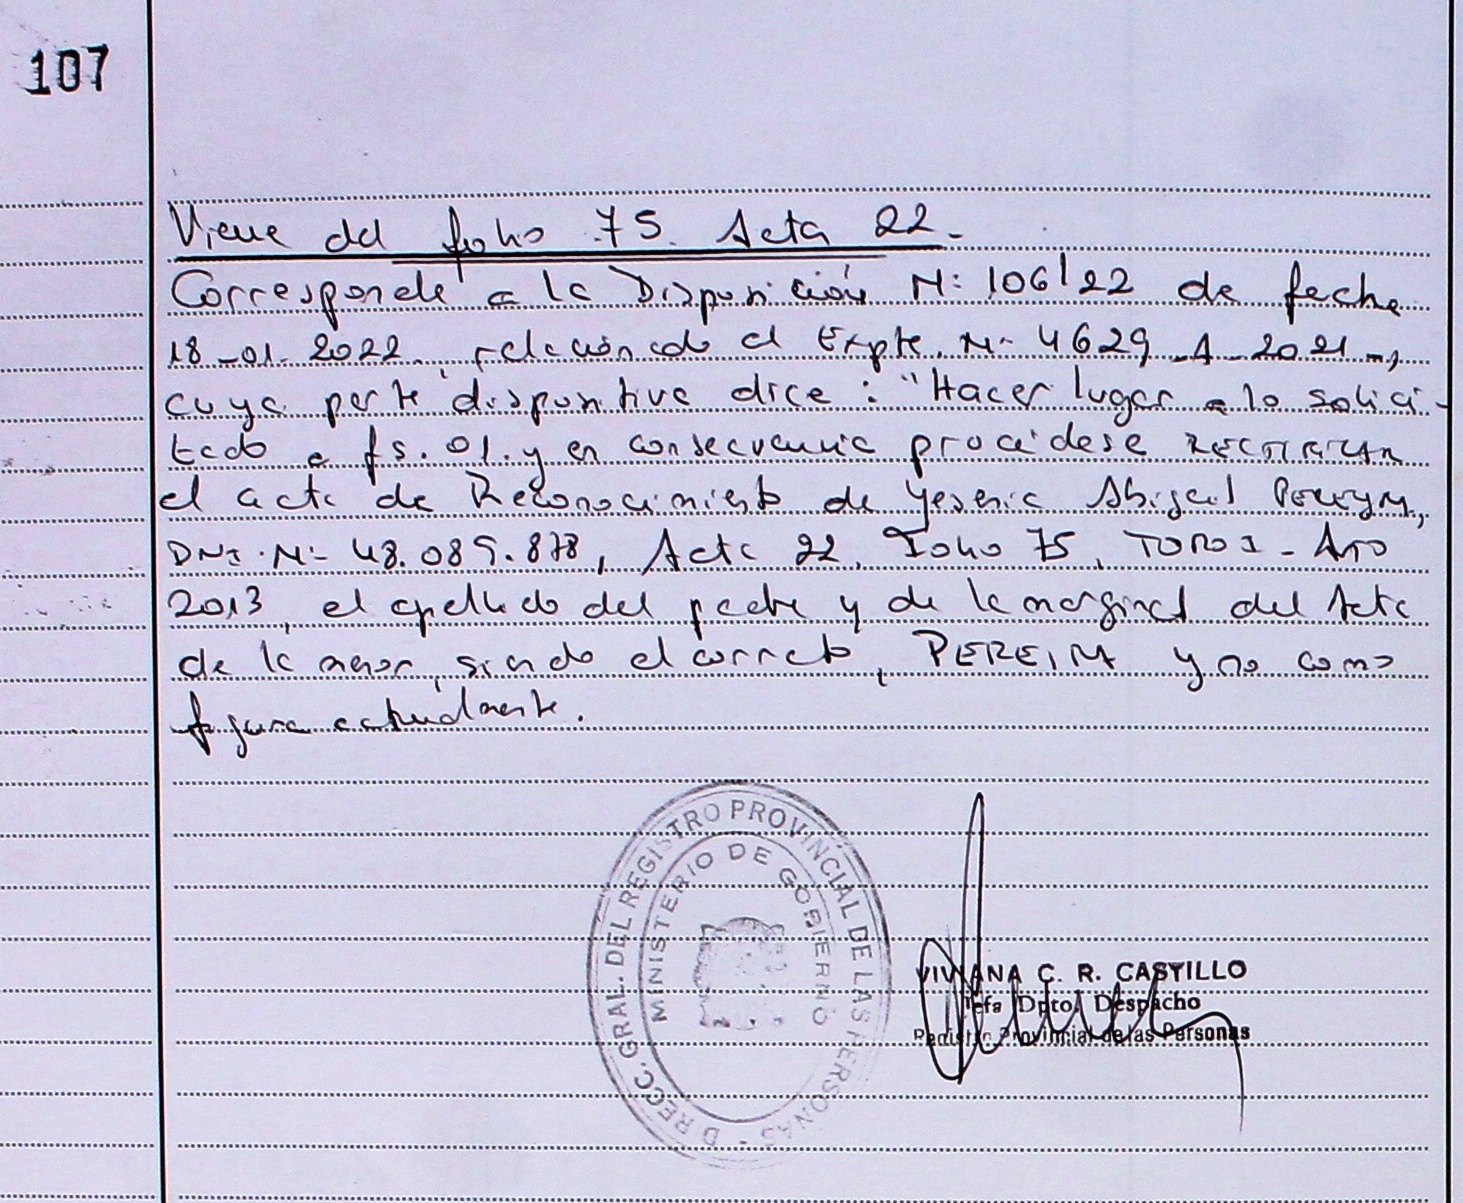 107
Viene del folio 75. Acta 22.-
Corresponde a la Disposición N: 106/22 de fecha
18-01-2022, relacionado al Expte. N- 4629-A-2021-,
cuya parte dispositiva dice: "Hacer lugar a lo solici-
tado a fs. 01. y en consecuencia procédese RECTIFICAR
el acta de Reconocimiento de Yesenia Abigail PEREYRA,
DNI. N- 48.089.878, Acta 22, Folio 75, TOMO I - Año
2013, el apellido del padre y de la marginal del Acta
de la menor, siendo el correcto, PEREIRA y no como
figura actualmente.
DIRECC. GRAL. DEL REGISTRO PROVINCIAL DE LAS PERSONAS -
MINISTERIO DE GOBIERNO
VIVIANA C. R. CASTILLO
Jefa Dpto. Despacho
Registro Provincial de las Personas